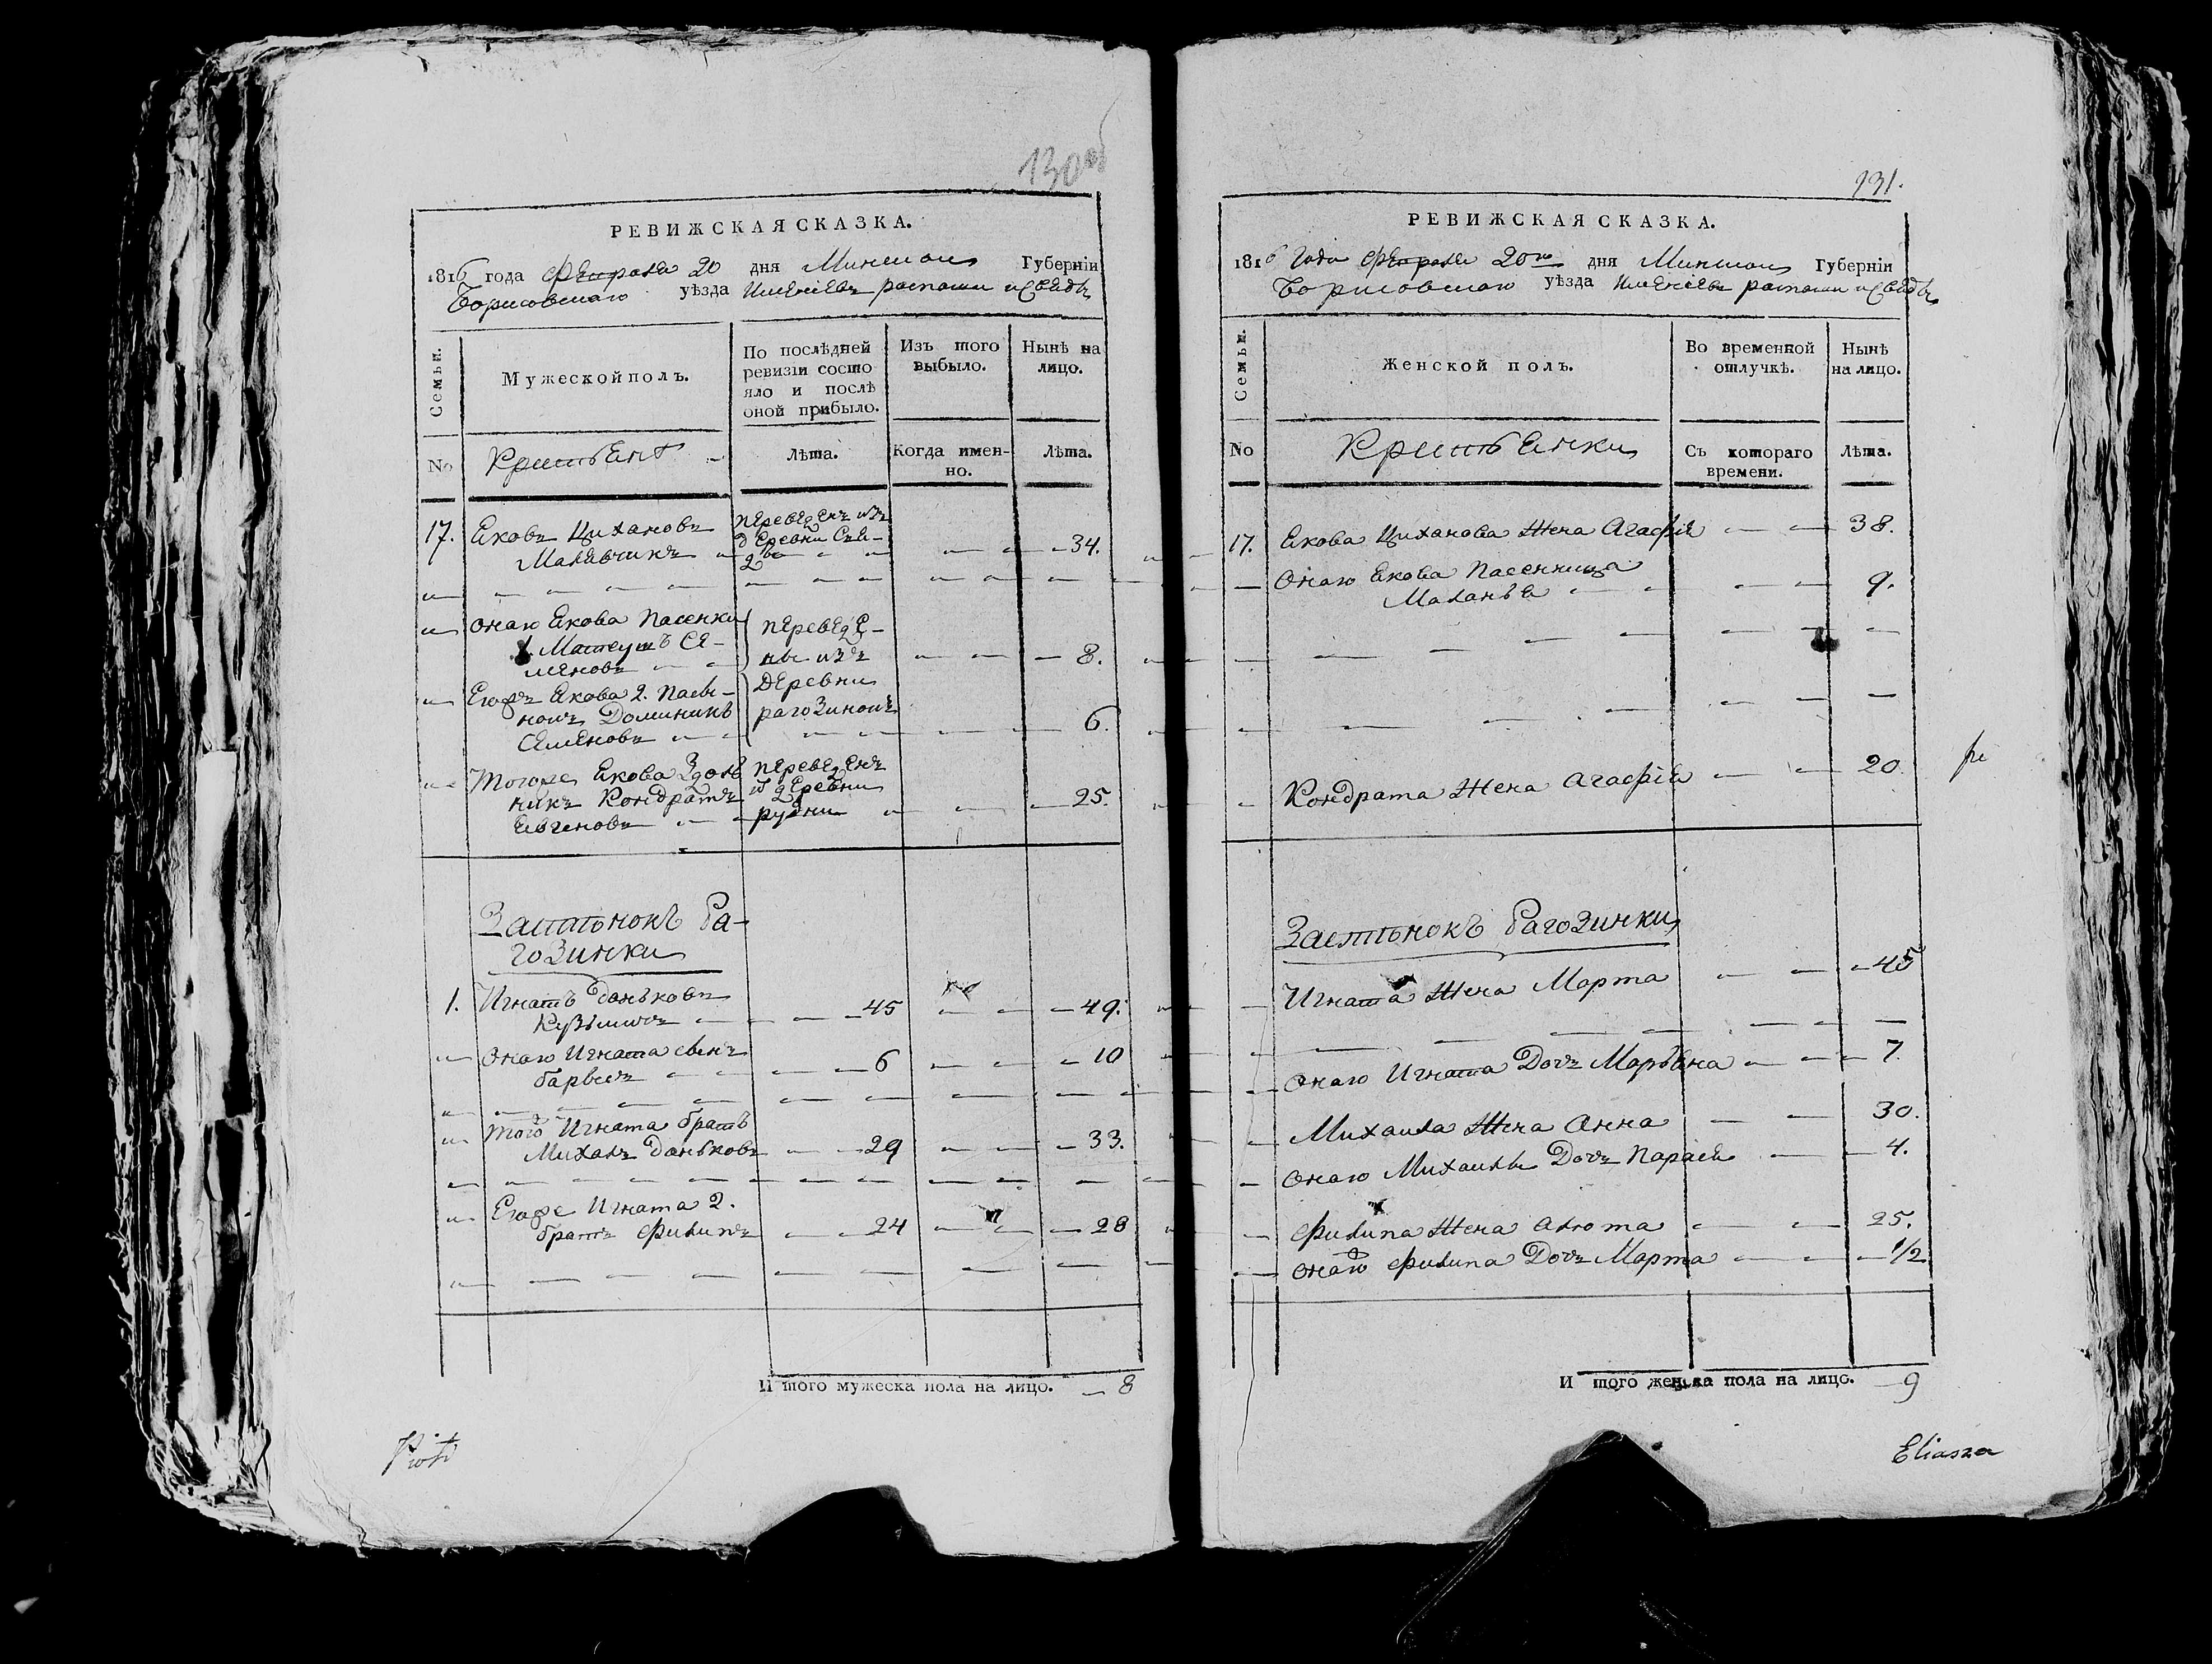 130 об
РЕВИЖСКАЯ СКАЗКА.
1816 года февраля 20 дня Минской Губерніи
Борисовскаго уѣзда
Семьи.
Мужеской полъ.
По послѣдней ревизіи состояло и послѣ оной прибыло.
Изъ того выбыло.
Нынѣ на лицо.
No
Лѣта.
Когда именно.
Лѣта.
17. Яковъ Циханов
переведенъ изъ
деревни
34.
онаго Якова пасенки
1. Матеушъ Се-
меновъ
переведе-
ны изъ
8.
Якова 2. пасы-
нокъ Доминикъ
Семеновъ
деревни
рагозинокъ
6.
тогоже Якова
никъ Кондратъ
переведенъ
деревни
рудни
25.
Застѣнокъ Ра-
гозинки
1. Игнатъ Даньковъ
45 49.
онаго Игната сынъ
6 10
того Игната братъ
Михалъ Даньковъ 29 33.
Игната 2.
братъ Филипъ 24 28
И того мужеска пола на лицо. 8
Piotr
131.
РЕВИЖСКАЯ СКАЗКА.
1816 года февраля 20го дня Минской Губерніи
Борисовскаго уѣзда
Семьи.
Женской полъ.
Во временной отлучкѣ.
Нынѣ на лицо.
No
Съ котораго времени.
Лѣта.
17. Якова Циханова жена Агафія 38.
онаго Якова пасенница
Маланья 9.
Кондрата жена Агафія 20
Застѣнокъ Рагозинки
Игната жена Марта 45
онаго Игната дочь Марьяна 7
Михаила жена Анна 30.
онаго Михаила дочь Парася 4.
Филипа жена 25.
онаго Филипа дочь Марта 1/2
И того женска пола на лицо. 9
Eliasza